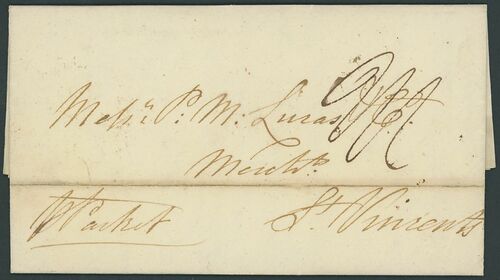 Messrs. P. M. Lucas & Co.
Merchts.
p Packet
St. Vincents